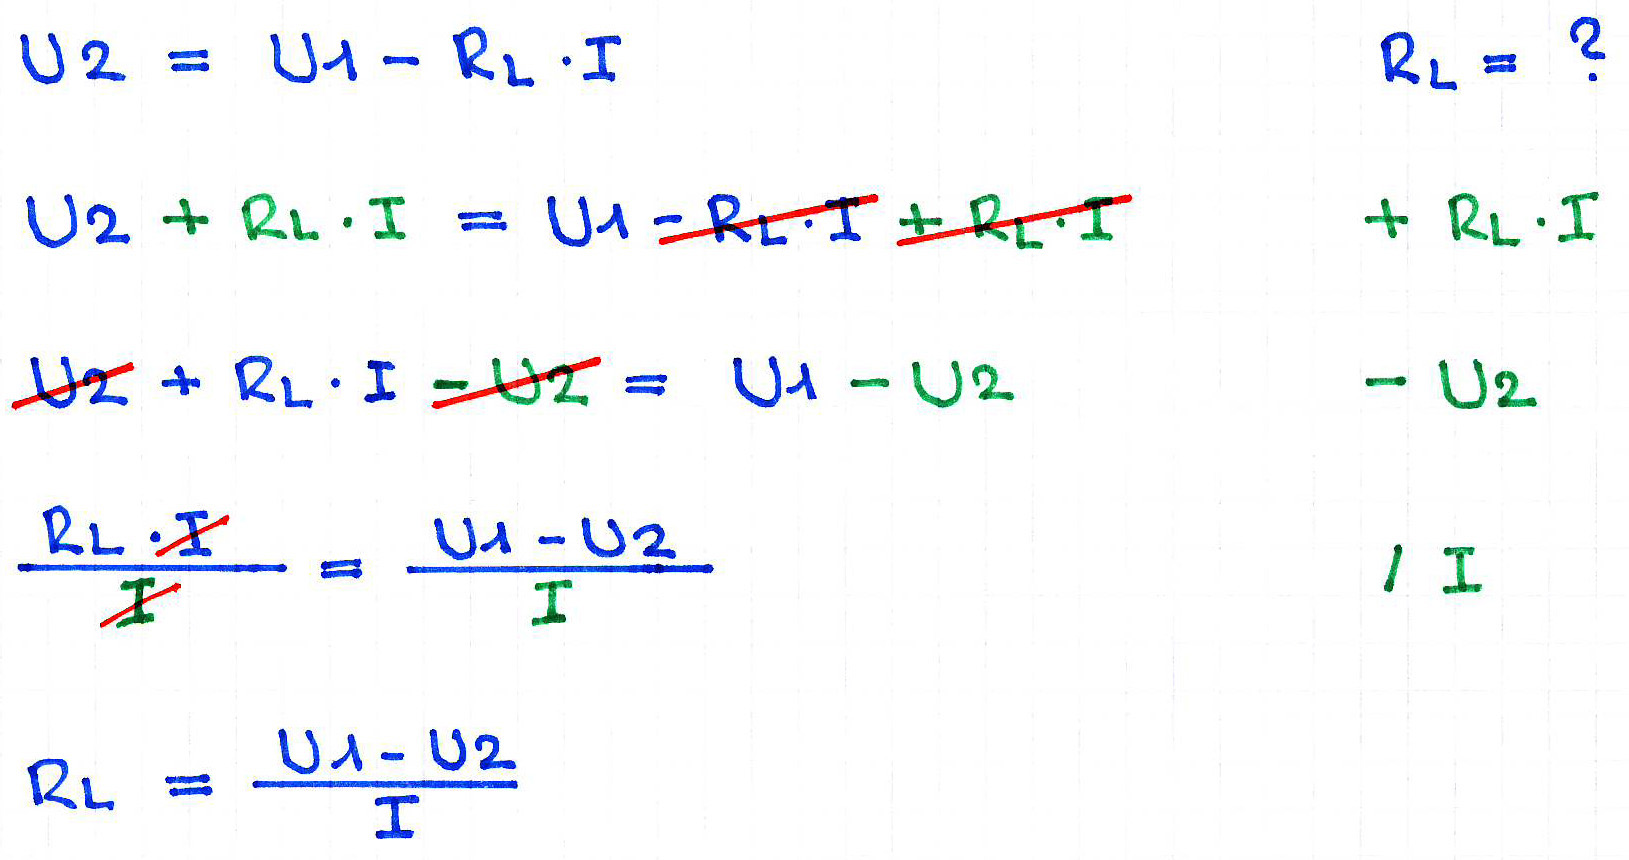 U2 = U1 - RL · I RL = ?
U2 + RL · I = U1 - RL · I + RL · I + RL · I
U2 + RL · I - U2 = U1 - U2 - U2
RL · I / I = U1 - U2 / I / I
RL = U1 - U2 / I